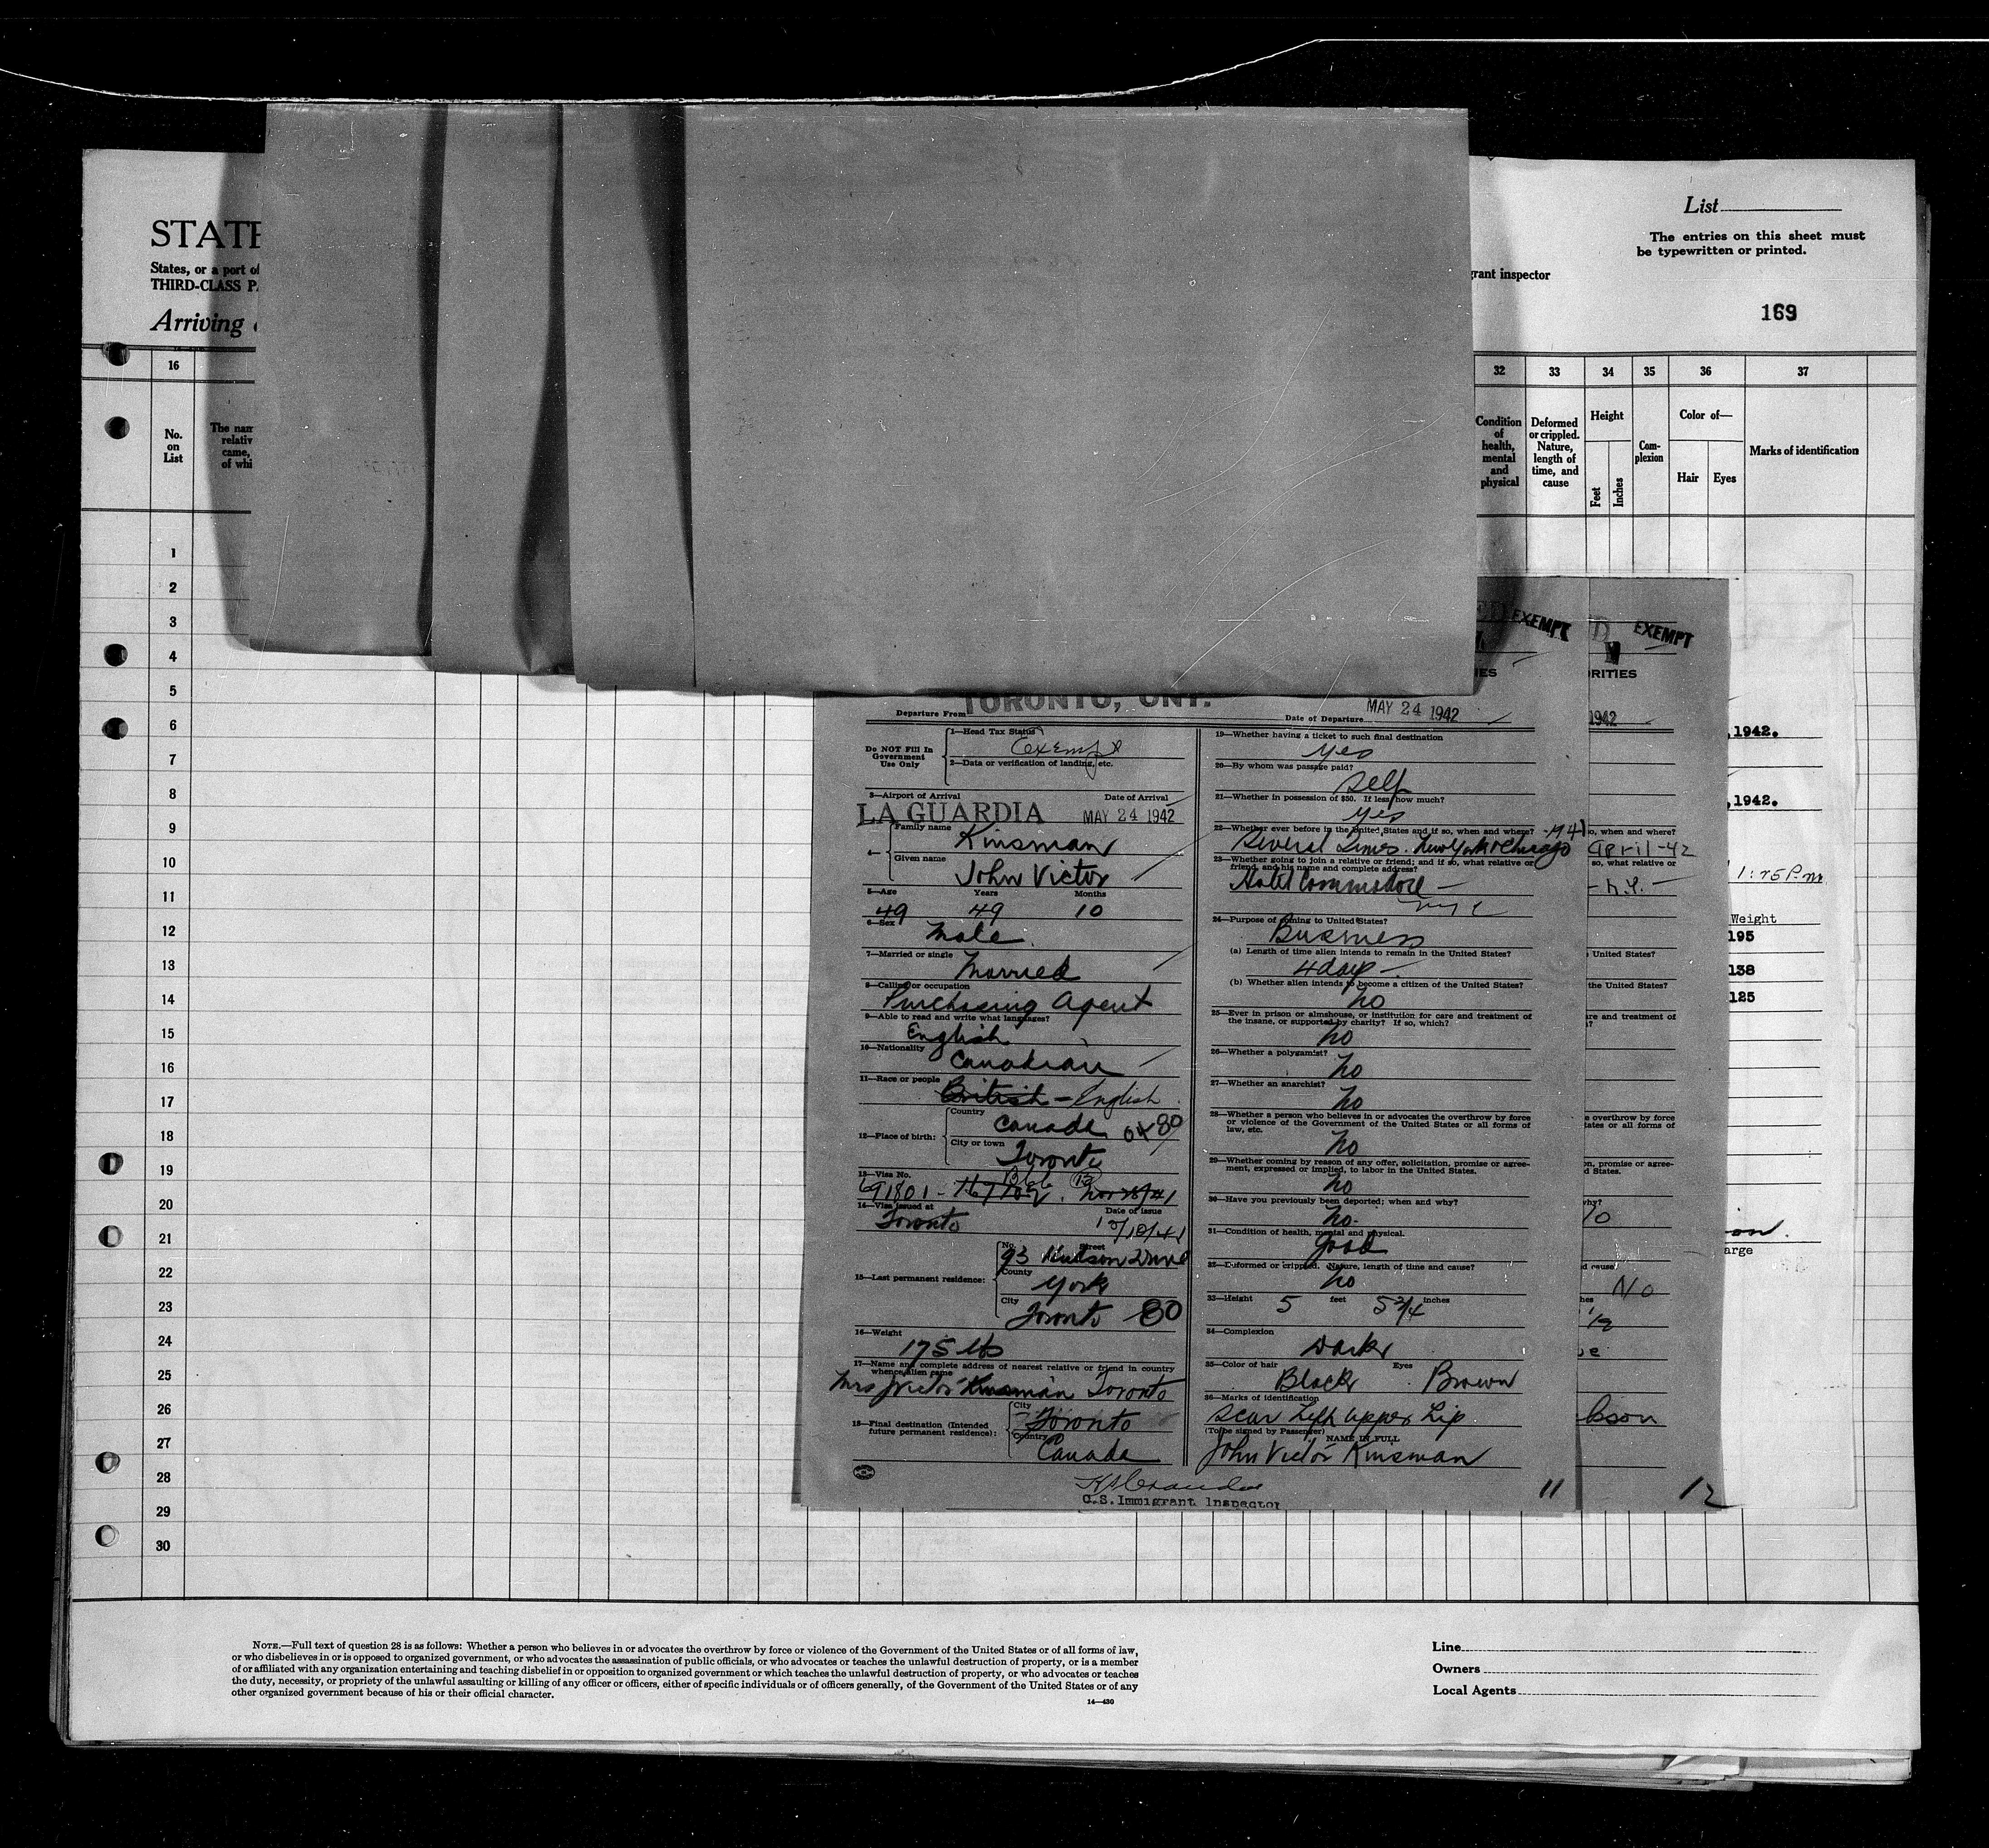 STATE
States, or a port of
THIRD-CLASS P
Arriving
grant inspector
List
The entries on this sheet must
be typewritten or printed.
169
16
32 33 34 35 36 37
No.
on
List
The nam
relativ
came,
of whi
Condition
of
health,
mental
and
physical
Deformed
or crippled.
Nature,
length of
time, and
cause
Height
Feet
Inches
Com-
plexion
Color of—
Hair
Eyes
Marks of identification
1
2
3
4
5
6
7
8
9
10
11
12
13
14
15
16
17
18
19
20
21
22
23
24
25
26
27
28
29
30
Departure From TORONTO, ONT.
Date of Departure MAY 24 1942
Do NOT Fill In
Government
Use Only
1—Head Tax Status
Exempt
2—Data or verification of landing, etc.
3—Airport of Arrival Date of Arrival
LA GUARDIA MAY 24 1942
4— Family name Kinsman
Given name John Victor
5—Age Years Months
49 49 10
6—Sex
Male
7—Married or single
Married
8—Calling or occupation
Purchasing Agent
9—Able to read and write what languages?
English
10—Nationality
Canadian
11—Race or people
British - English
12—Place of birth:
Country
Canada 80
City or town
Toronto
13—Visa No.
691801
14—Visa issued at Date of issue
Toronto
15—Last permanent residence:
No. Street
93 Hudson Drive
County
York
City
Toronto 80
16—Weight
175 lbs
17—Name and complete address of nearest relative or friend in country
whence alien came
Mrs Victor Kinsman Toronto
18—Final destination (Intended
future permanent residence):
City
Toronto
Country
Canada
19—Whether having a ticket to such final destination
yes
20—By whom was passage paid?
Self
21—Whether in possession of $50. If less, how much?
yes
22—Whether ever before in the United States and if so, when and where?
Several Times. New York & Chicago
23—Whether going to join a relative or friend; and if so, what relative or
friend, and his name and complete address?
Hotel Commodore —
NYC
24—Purpose of coming to United States?
Business
(a) Length of time alien intends to remain in the United States?
4 days —
(b) Whether alien intends to become a citizen of the United States?
No
25—Ever in prison or almshouse, or institution for care and treatment of
the insane, or supported by charity? If so, which?
No
26—Whether a polygamist?
No
27—Whether an anarchist?
No
28—Whether a person who believes in or advocates the overthrow by force
or violence of the Government of the United States or all forms of
law, etc.
No
29—Whether coming by reason of any offer, solicitation, promise or agree-
ment, expressed or implied, to labor in the United States.
No
30—Have you previously been deported; when and why?
No.
31—Condition of health, mental and physical.
Good
32—Deformed or crippled. Nature, length of time and cause?
No
33—Height 5 feet 5 3/4 inches
34—Complexion
Dark
35—Color of hair Eyes
Black Brown
36—Marks of identification
Scar Left Upper Lip
(To be signed by Passenger) NAME IN FULL
John Victor Kinsman
U.S. Immigrant Inspector
11
EXEMPT
EXEMPT
IES
ORITIES
1942
so, when and where?
April-42
so, what relative or
- N.Y. —
United States?
the United States?
are and treatment of
e overthrow by force
tates or all forms of
on, promise or agree-
d States.
why?
No
d cause?
No
hes
1/2
bson
12
, 1942.
, 1942.
Weight
195
138
125
arge
NOTE.—Full text of question 28 is as follows: Whether a person who believes in or advocates the overthrow by force or violence of the Government of the United States or of all forms of law,
or who disbelieves in or is opposed to organized government, or who advocates the assassination of public officials, or who advocates or teaches the unlawful destruction of property, or is a member
of or affiliated with any organization entertaining and teaching disbelief in or opposition to organized government or which teaches the unlawful destruction of property, or who advocates or teaches
the duty, necessity, or propriety of the unlawful assaulting or killing of any officer or officers, either of specific individuals or of officers generally, of the Government of the United States or of any
other organized government because of his or their official character.
14—430
Line
Owners
Local Agents